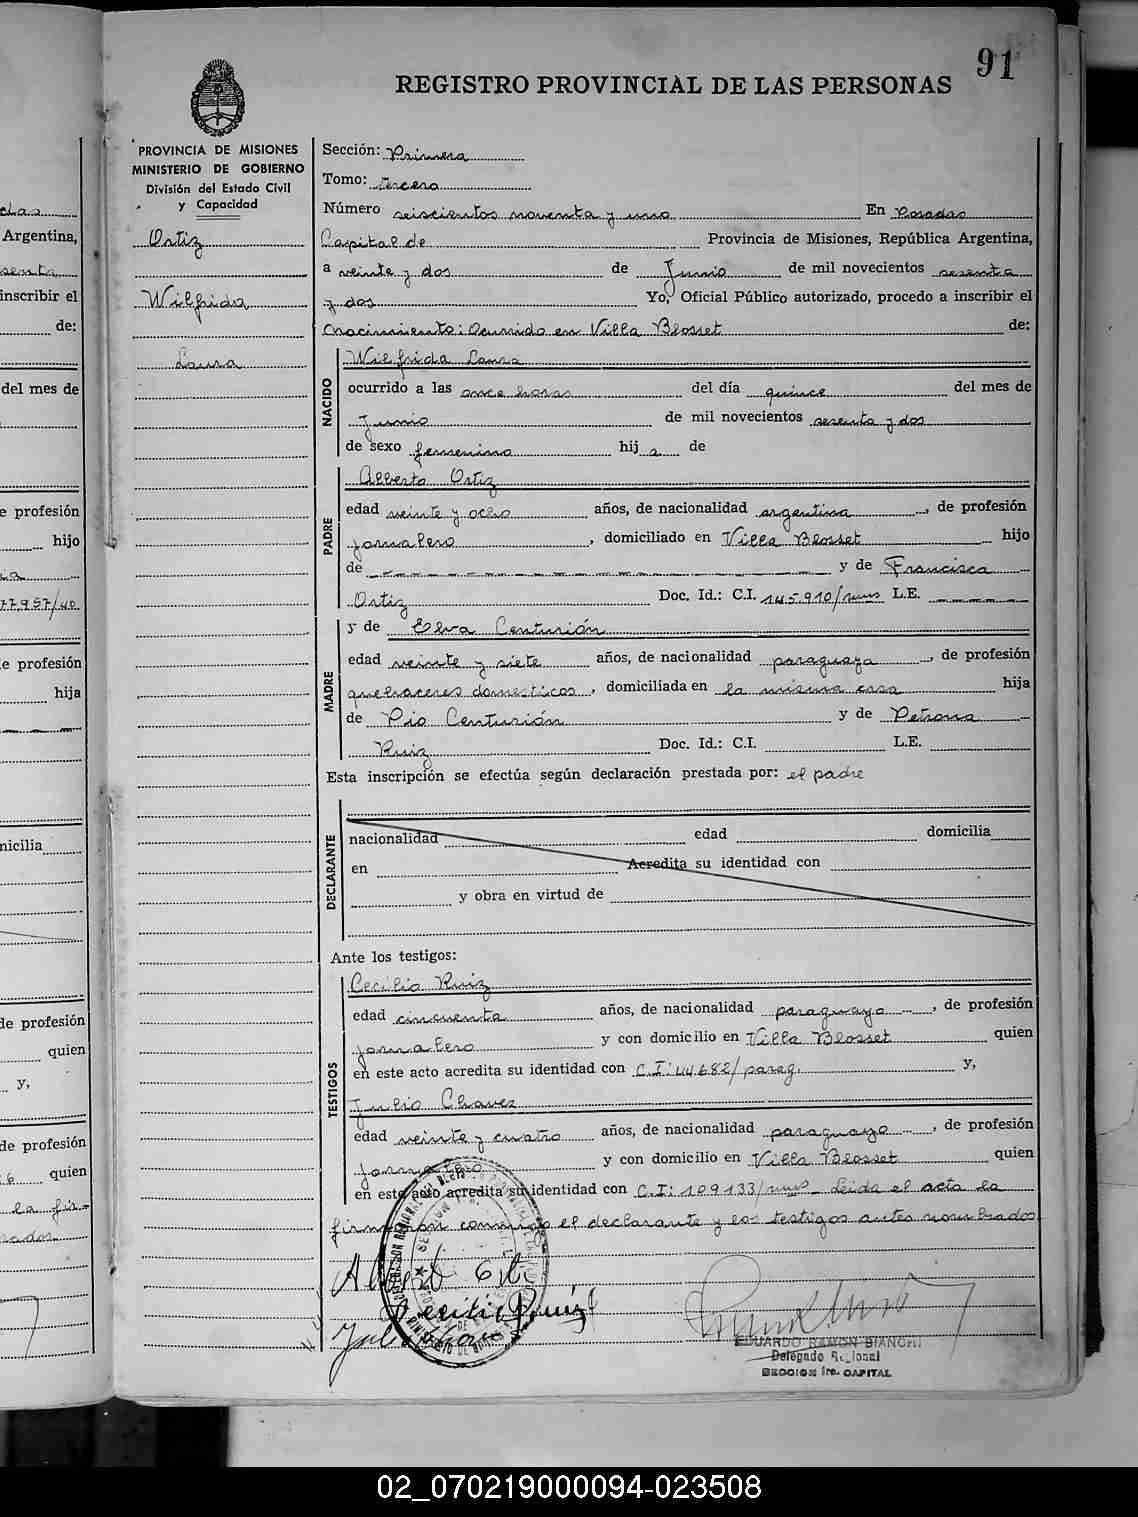 91
REGISTRO PROVINCIAL DE LAS PERSONAS
PROVINCIA DE MISIONES
MINISTERIO DE GOBIERNO
División del Estado Civil
y Capacidad
Ortiz
Wilfrida
Laura
Sección: Primera
Tomo: tercero
Número seiscientos noventa y uno En Posadas
Capital de Provincia de Misiones, República Argentina,
a veinte y dos de Junio de mil novecientos sesenta
y dos Yo, Oficial Público autorizado, procedo a inscribir el
nacimiento: Ocurrido en Villa Blosset de:
NACIDO
Wilfrida Laura
ocurrido a las once horas del día quince del mes de
Junio de mil novecientos sesenta y dos
de sexo femenino hij a de
PADRE
Alberto Ortiz
edad veinte y ocho años, de nacionalidad argentina, de profesión
jornalero, domiciliado en Villa Blosset hijo
de y de Francisca
Ortiz Doc. Id.: C.I. 145.910/mns L.E.
MADRE
y de Elva Centurión
edad veinte y siete años, de nacionalidad paraguaya, de profesión
quehaceres domesticos, domiciliada en la misma casa hija
de Pio Centurión y de Petrona
Ruiz Doc. Id.: C.I. L.E.
Esta inscripción se efectúa según declaración prestada por: el padre
DECLARANTE
nacionalidad edad domicilia
en Acredita su identidad con
y obra en virtud de
Ante los testigos:
TESTIGOS
Cecilio Ruiz
edad cincuenta años, de nacionalidad paraguayo, de profesión
jornalero y con domicilio en Villa Blosset quien
en este acto acredita su identidad con C.I: 44.682/parag. y,
Julio Chavez
edad veinte y cuatro años, de nacionalidad paraguayo, de profesión
jornalero y con domicilio en Villa Blosset quien
en este acto acredita su identidad con C.I: 109133/mns Leida el acta la
firmaron conmigo el declarante y los testigos antes nombrados
Cecilio Ruiz
EDUARDO RAMON BIANCHI
Delegado Regional
SECCION 1ra. CAPITAL
Argentina,
inscribir el
de:
del mes de
de profesión
hijo
77.957/40
de profesión
hija
de profesión
quien
y,
de profesión
quien
02_070219000094-023508